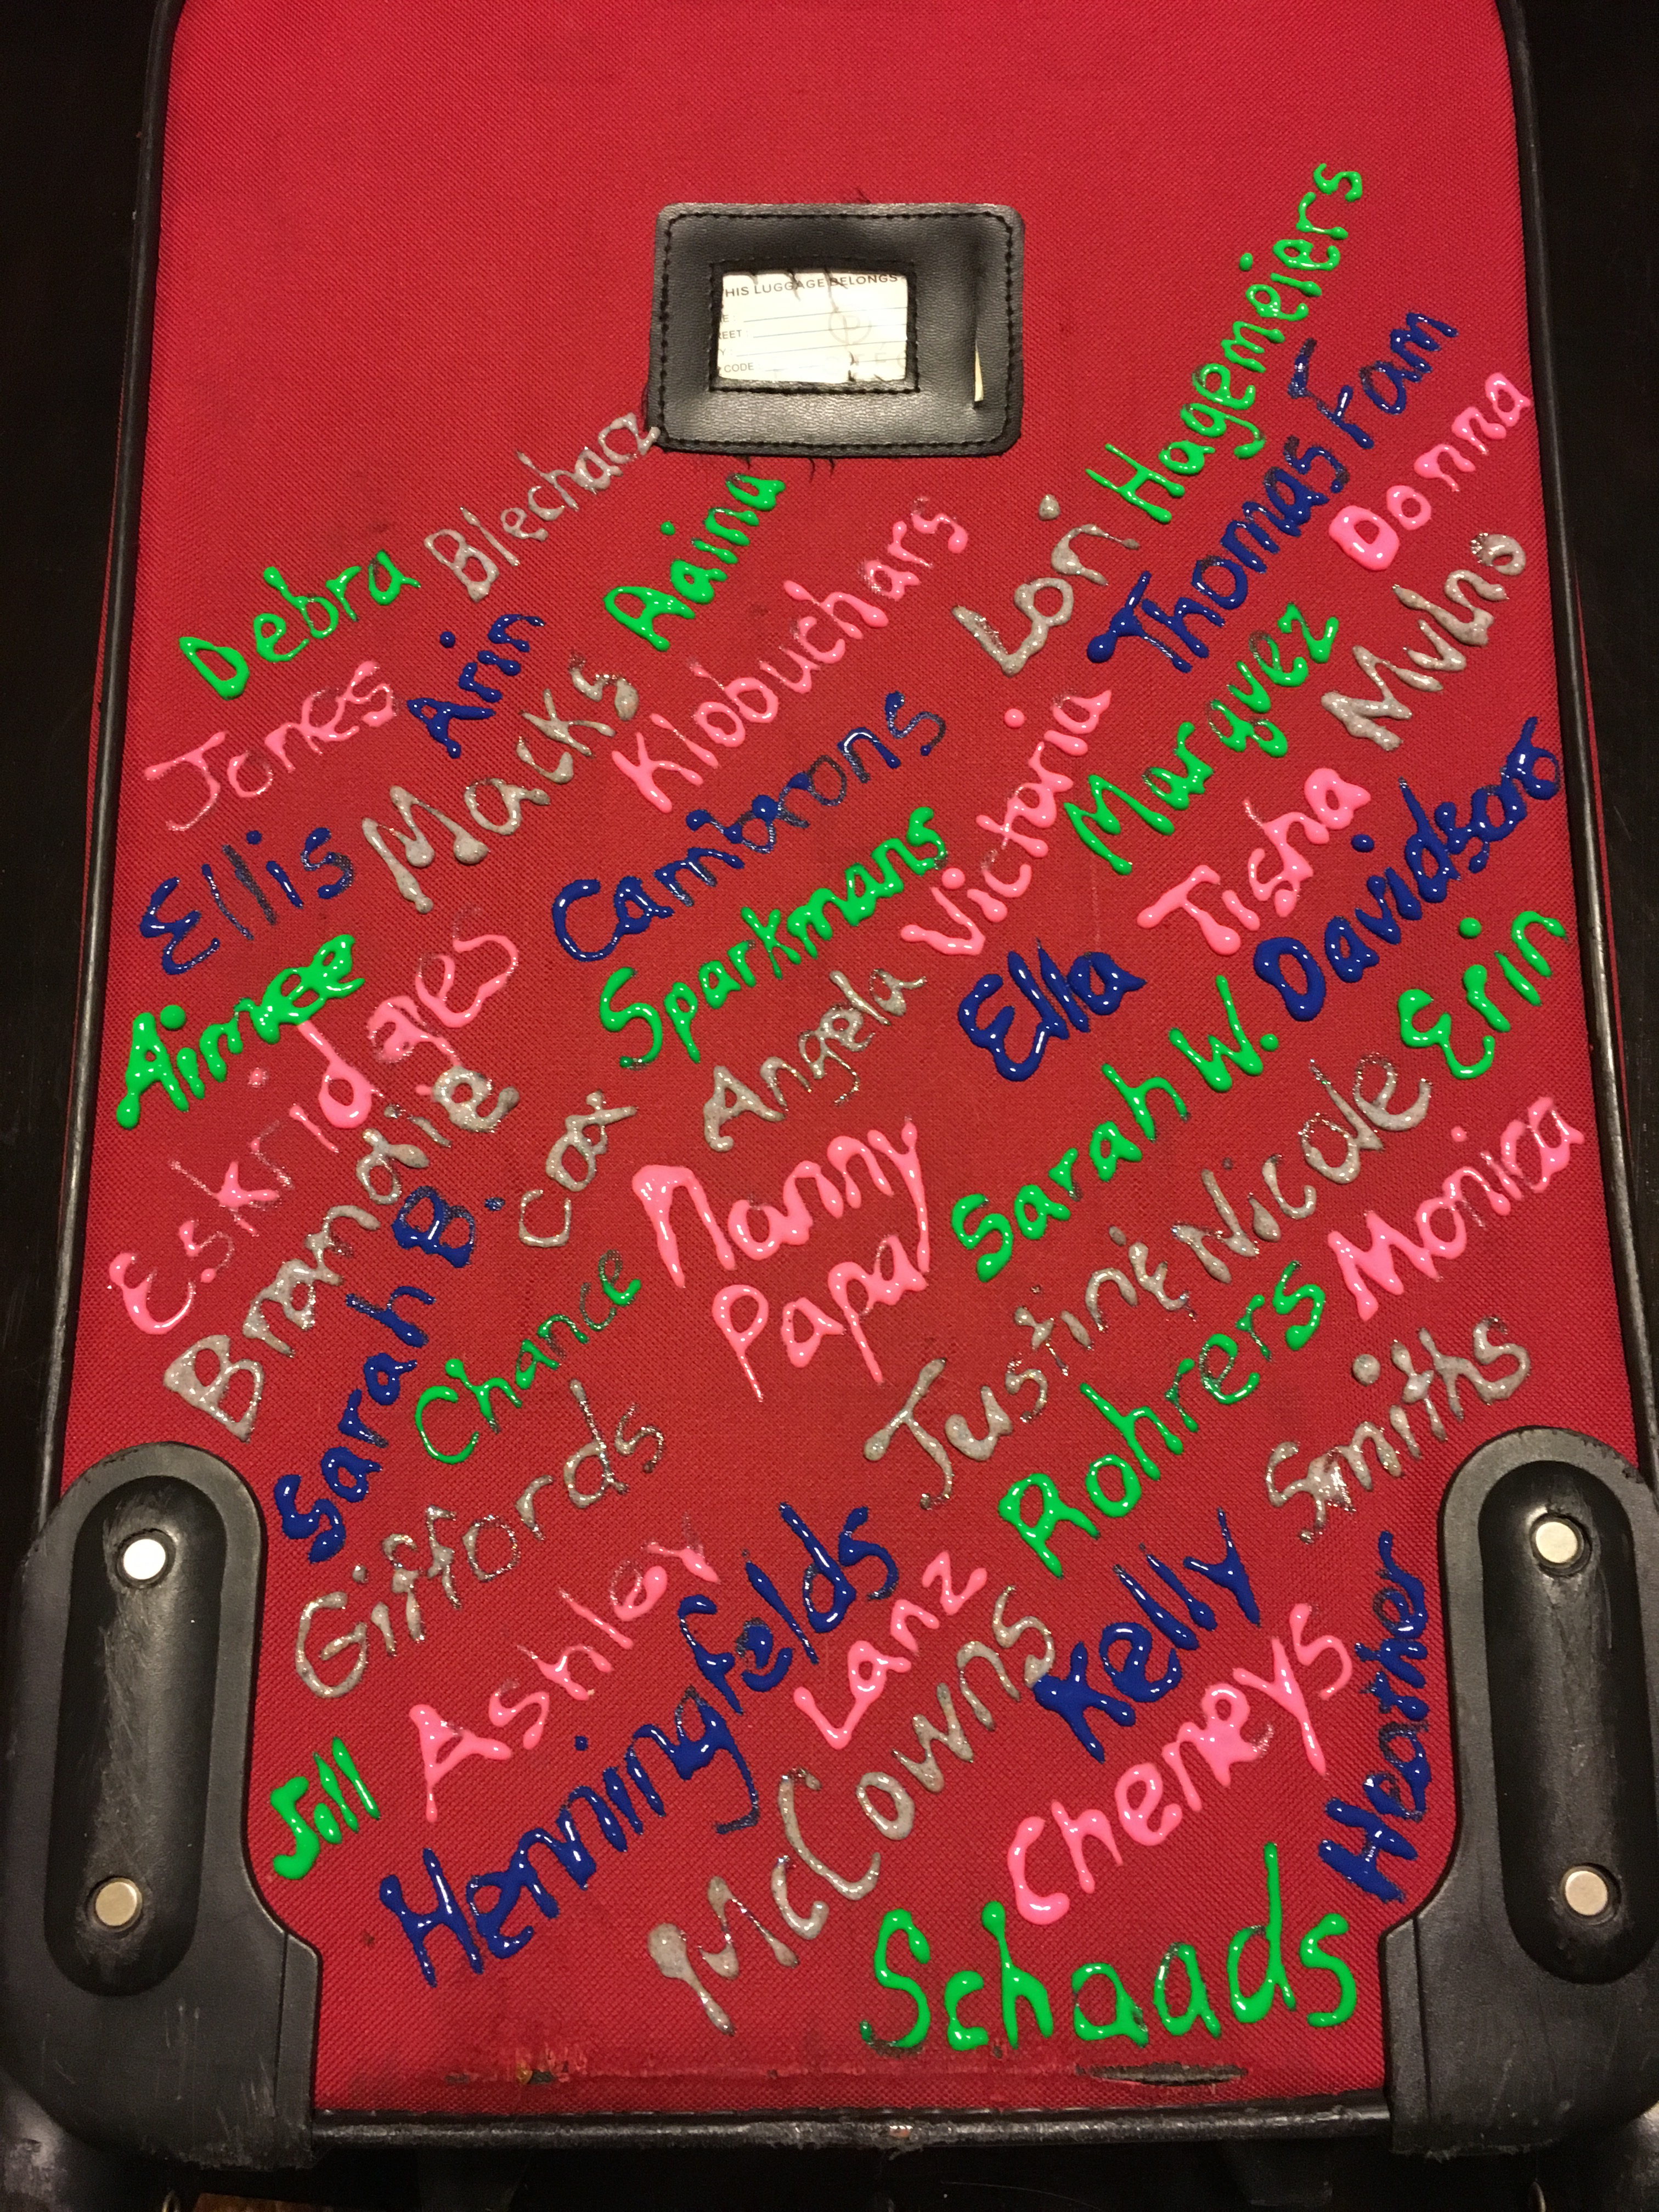 HIS LUGGAGE BELONGS
CODE
Hagemeiers
Thomas Fam
Debra
Blechacz
Aaina
Donna
Lori
Klobuchars
Arin
Jones
Macks
Marquez
Ellis
Cambrons
Victoria
Tisha
Davidsons
Sparkmans
Aimee
Eskridges
Angela
Ella
Erin
Brandie
Cox
Sarah W.
Nanny
Papa
Sarah B.
Justin & Nicole
Monica
Chance
Rohrers
Giffords
Smiths
Ashley
Henningfelds
Lanz
Kelly
Heather
Jill
McCowns
Cheneys
Schaads